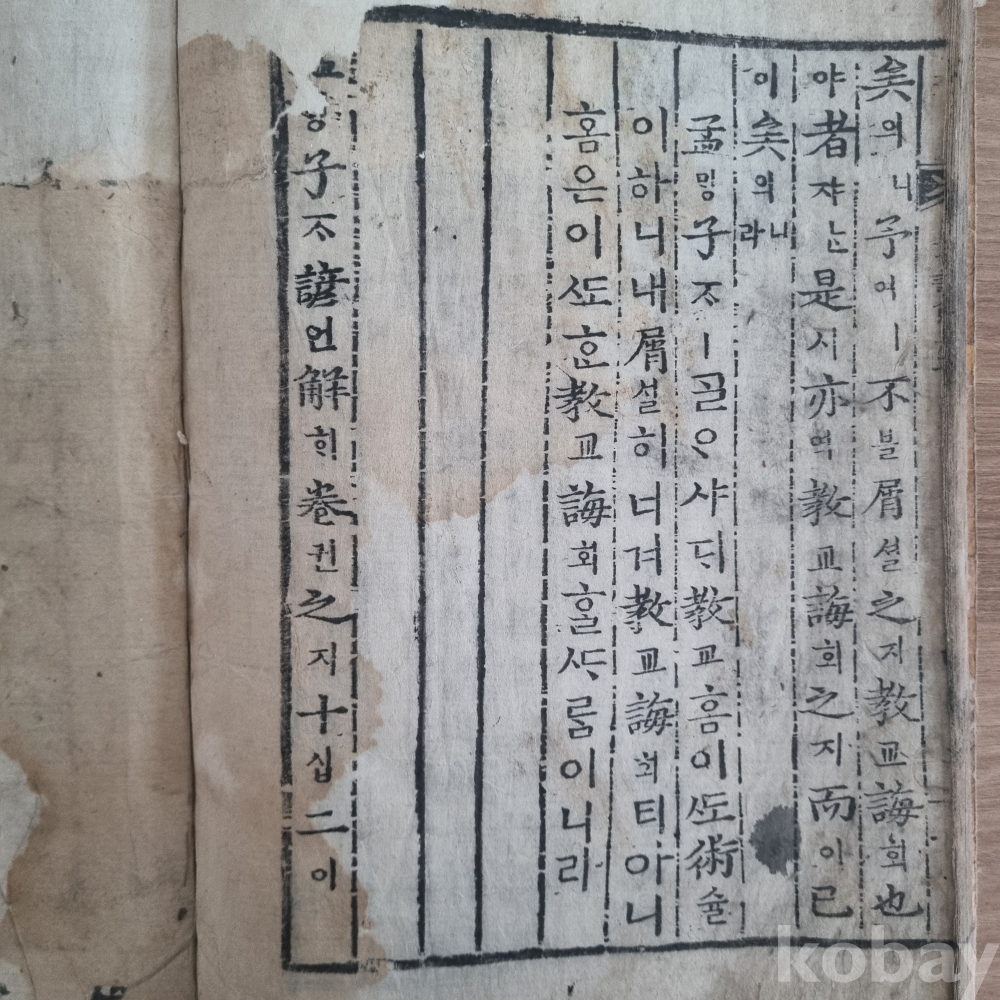 矣의니予여ㅣ不블屑셜之지敎교誨회也
야者쟈ᄂᆞᆫ是시亦역敎교誨회之지而이已
이矣의니라
孟ᄆᆡᆼ子ᄌᆞㅣᄀᆞᆯᄋᆞ샤ᄃᆡ敎교홈이ᄯᅩ術슐
이하니내屑셜히너겨敎교誨회티아니
홈은이ᄯᅩᄒᆞᆫ敎교誨회ᄒᆞᆯᄯᆞᄅᆞᆷ이니라
子ᄌᆞ諺언解ᄒᆡ卷권之지十십二이
kobay